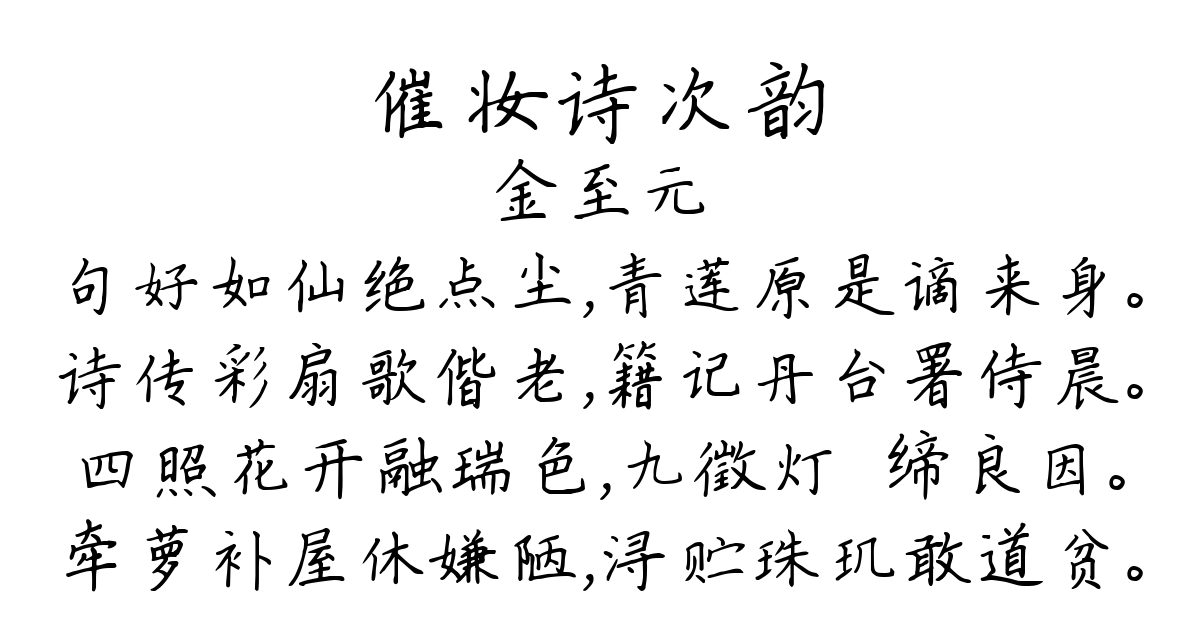 催妆诗次韵
金至元
句好如仙绝点尘,青莲原是谪来身。
诗传彩扇歌偕老,籍记丹台署侍晨。
四照花开融瑞色,九徵灯 缔良因。
牵萝补屋休嫌陋,浔贮珠玑敢道贫。